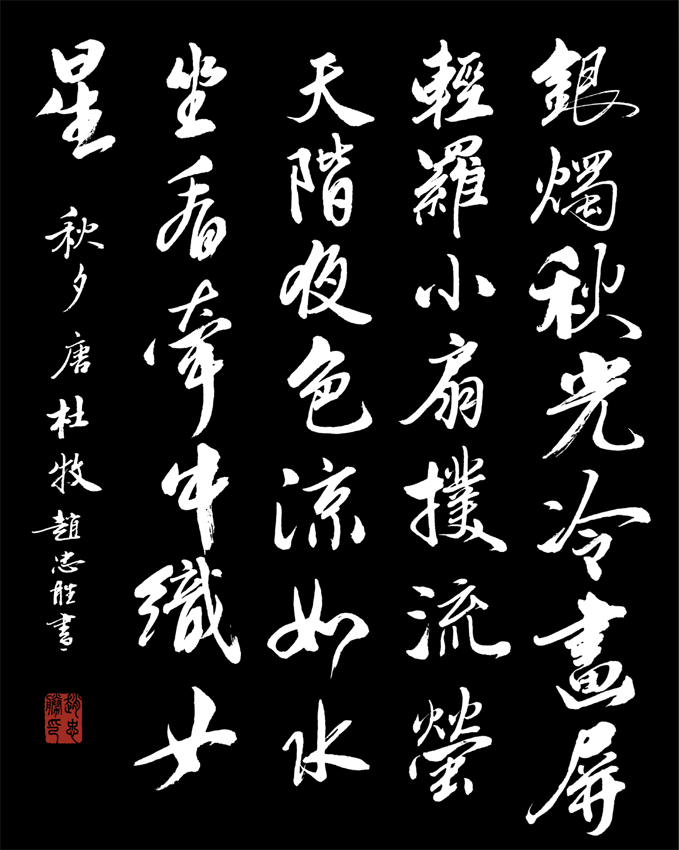 銀燭秋光冷畫屏
輕羅小扇撲流螢
天階夜色涼如水
坐看牽牛織女
星 秋夕 唐 杜牧 趙忠胜書
趙忠勝印